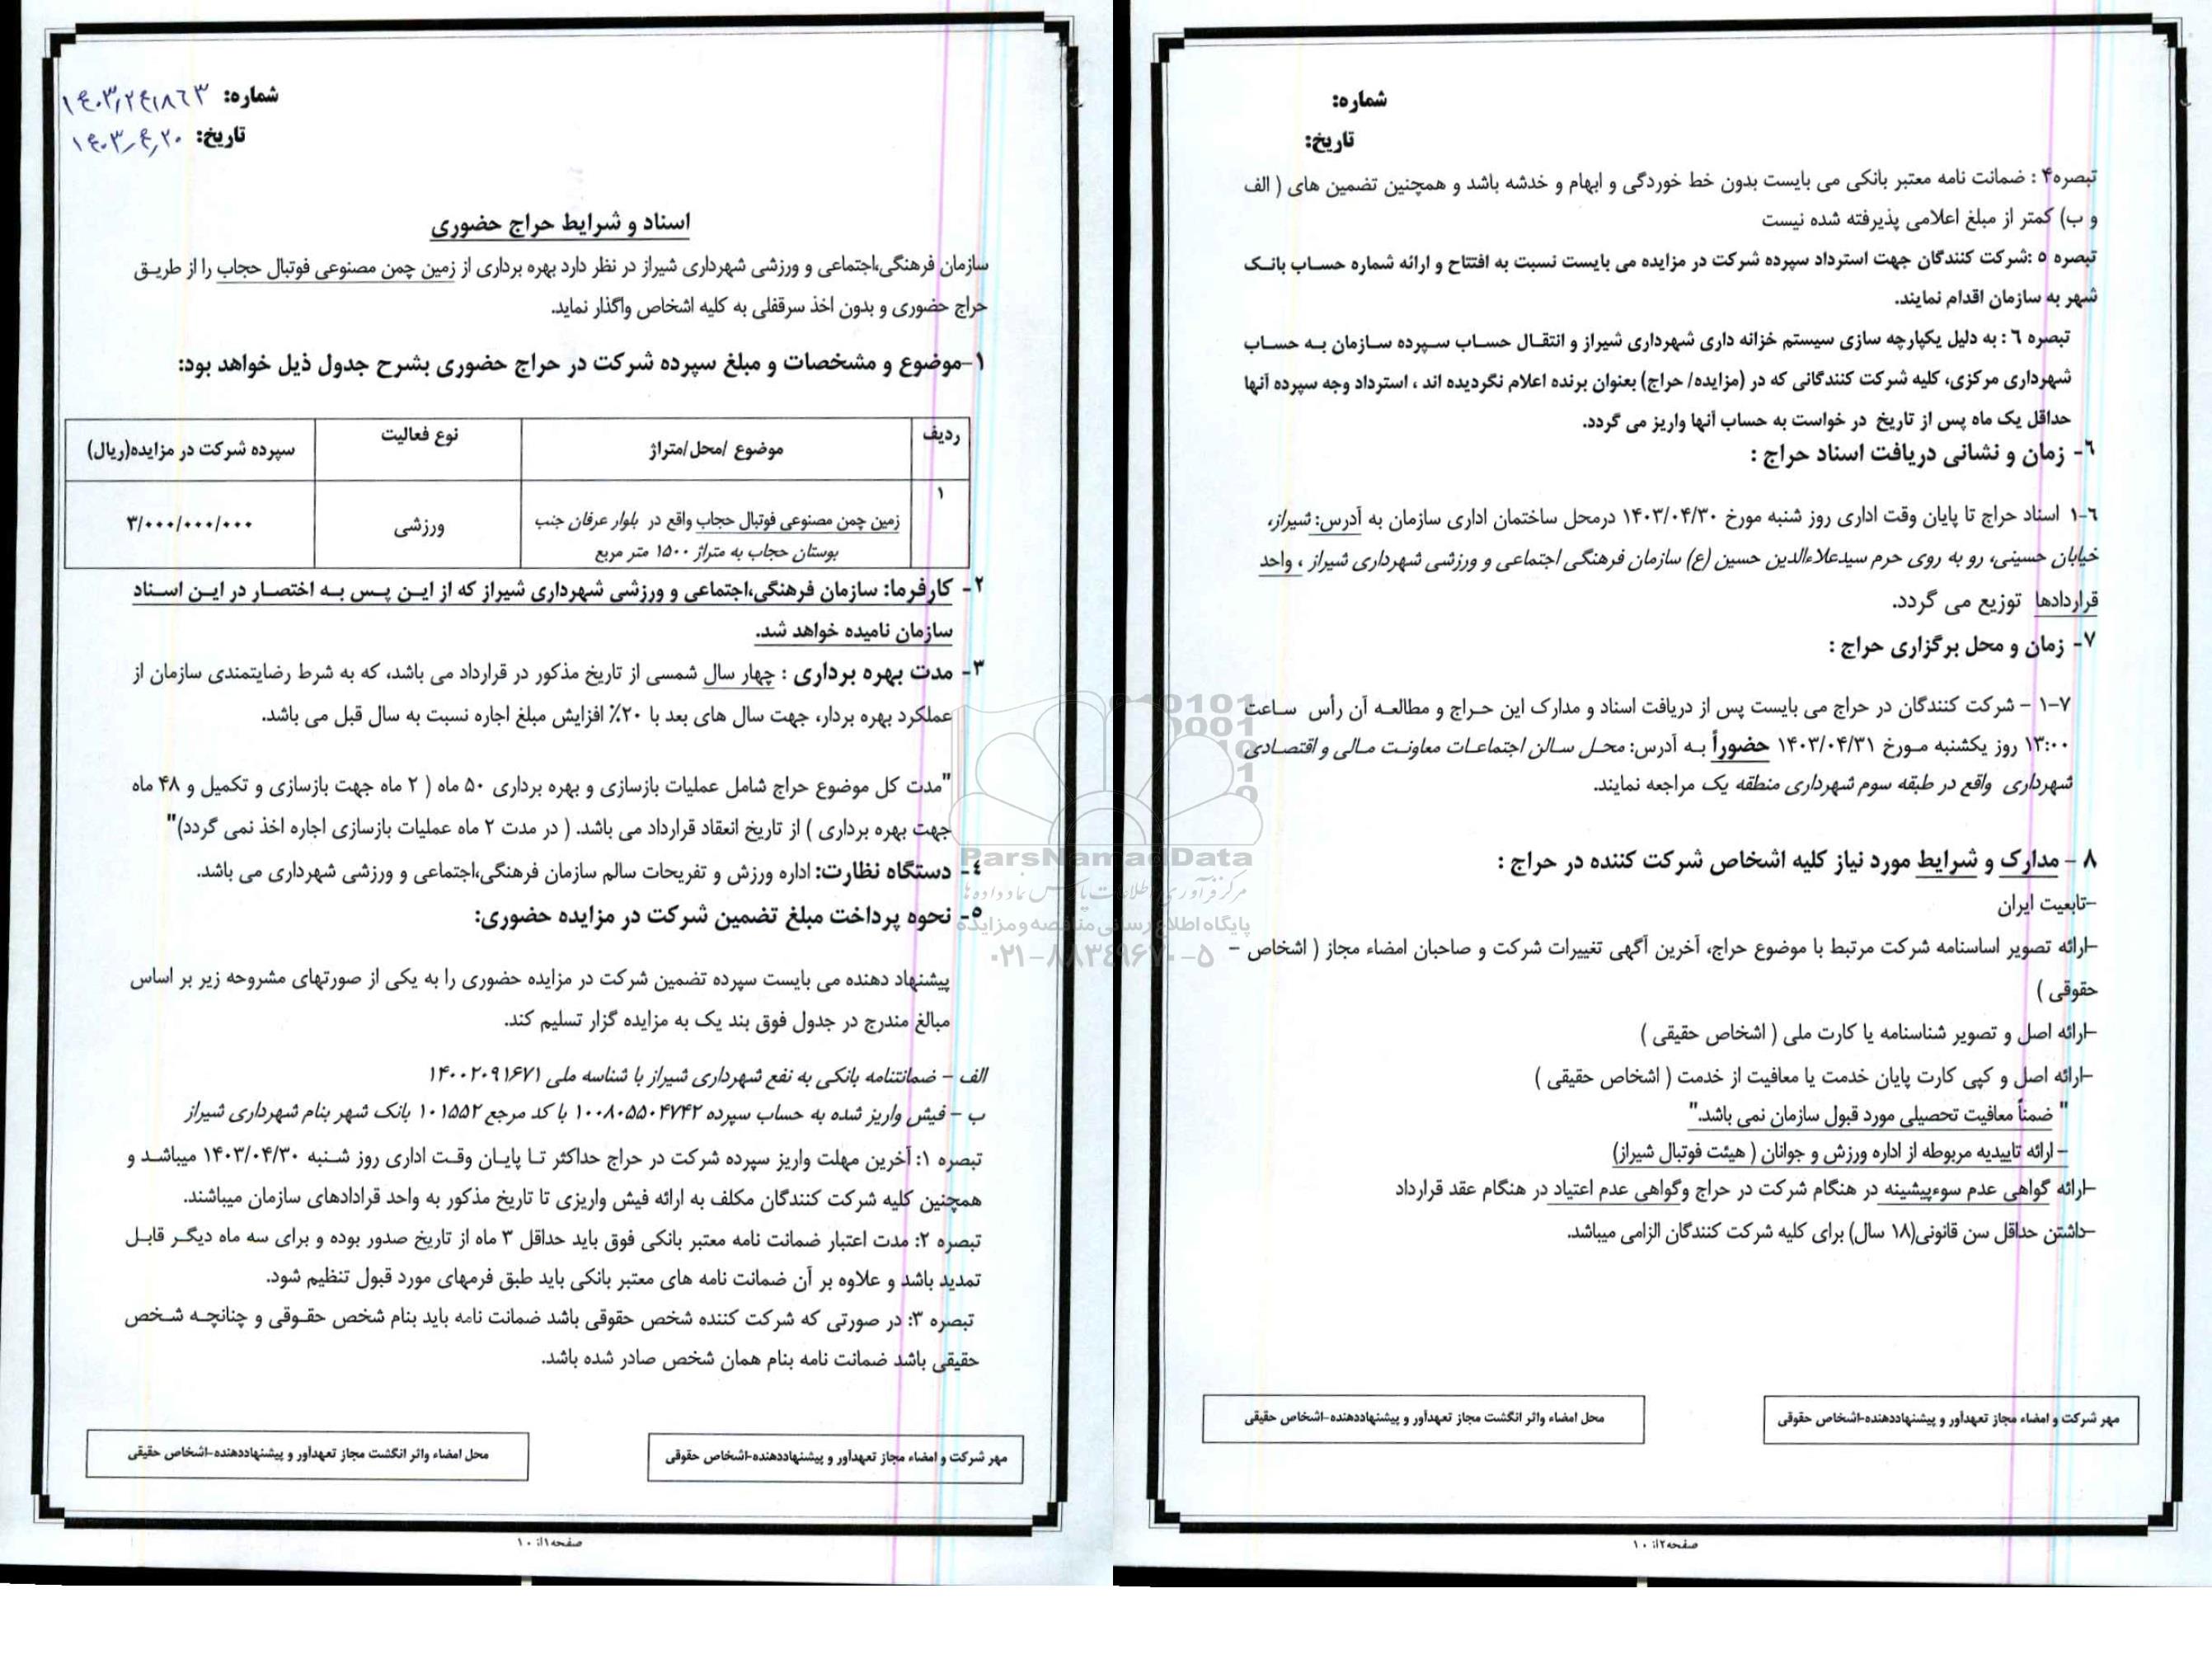 شماره: ۱۴۰۳٫۲۴۱۸۶۳
تاریخ: ۱۴۰۳٫۴٫۲۰
اسناد و شرایط حراج حضوری
سازمان فرهنگی،اجتماعی و ورزشی شهرداری شیراز در نظر دارد بهره برداری از زمین چمن مصنوعی فوتبال حجاب را از طریـق
حراج حضوری و بدون اخذ سرقفلی به کلیه اشخاص واگذار نماید.
۱-موضوع و مشخصات و مبلغ سپرده شرکت در حراج حضوری بشرح جدول ذیل خواهد بود:
ردیف موضوع /محل/متراژ نوع فعالیت سپرده شرکت در مزایده(ریال)
۱ زمین چمن مصنوعی فوتبال حجاب واقع در بلوار عرفان جنب ورزشی ۳/۰۰۰/۰۰۰/۰۰۰
بوستان حجاب به متراژ ۱۵۰۰ متر مربع
۲- کارفرما: سازمان فرهنگی،اجتماعی و ورزشی شهرداری شیراز که از ایـن پـس بـه اختصـار در ایـن اسـناد
سازمان نامیده خواهد شد.
۳- مدت بهره برداری : چهار سال شمسی از تاریخ مذکور در قرارداد می باشد، که به شرط رضایتمندی سازمان از
عملکرد بهره بردار، جهت سال های بعد با ۲۰٪ افزایش مبلغ اجاره نسبت به سال قبل می باشد.
"مدت کل موضوع حراج شامل عملیات بازسازی و بهره برداری ۵۰ ماه ( ۲ ماه جهت بازسازی و تکمیل و ۴۸ ماه
جهت بهره برداری ) از تاریخ انعقاد قرارداد می باشد. ( در مدت ۲ ماه عملیات بازسازی اجاره اخذ نمی گردد)"
۴- دستگاه نظارت: اداره ورزش و تفریحات سالم سازمان فرهنگی،اجتماعی و ورزشی شهرداری می باشد.
۵- نحوه پرداخت مبلغ تضمین شرکت در مزایده حضوری:
پیشنهاد دهنده می بایست سپرده تضمین شرکت در مزایده حضوری را به یکی از صورتهای مشروحه زیر بر اساس
مبالغ مندرج در جدول فوق بند یک به مزایده گزار تسلیم کند.
الف – ضمانتنامه بانکی به نفع شهرداری شیراز با شناسه ملی ۱۴۰۰۲۰۹۱۶۷۱
ب – فیش واریز شده به حساب سپرده ۱۰۰۸۰۵۵۰۴۷۴۲ با کد مرجع ۱۰۱۵۵۲ بانک شهر بنام شهرداری شیراز
تبصره ۱: آخرین مهلت واریز سپرده شرکت در حراج حداکثر تـا پایـان وقـت اداری روز شـنبه ۱۴۰۳/۰۴/۳۰ میباشـد و
همچنین کلیه شرکت کنندگان مکلف به ارائه فیش واریزی تا تاریخ مذکور به واحد قرادادهای سازمان میباشند.
تبصره ۲: مدت اعتبار ضمانت نامه معتبر بانکی فوق باید حداقل ۳ ماه از تاریخ صدور بوده و برای سه ماه دیگـر قابـل
تمدید باشد و علاوه بر آن ضمانت نامه های معتبر بانکی باید طبق فرمهای مورد قبول تنظیم شود.
تبصره ۳: در صورتی که شرکت کننده شخص حقوقی باشد ضمانت نامه باید بنام شخص حقـوقی و چنانچـه شـخص
حقیقی باشد ضمانت نامه بنام همان شخص صادر شده باشد.
مهر شرکت و امضاء مجاز تعهدآور و پیشنهاددهنده-اشخاص حقوقی
محل امضاء واثر انگشت مجاز تعهدآور و پیشنهاددهنده-اشخاص حقیقی
صفحه۱از ۱۰
شماره:
تاریخ:
تبصره۴ : ضمانت نامه معتبر بانکی می بایست بدون خط خوردگی و ابهام و خدشه باشد و همچنین تضمین های ( الف
و ب) کمتر از مبلغ اعلامی پذیرفته شده نیست
تبصره ۵ :شرکت کنندگان جهت استرداد سپرده شرکت در مزایده می بایست نسبت به افتتاح و ارائه شماره حسـاب بانـک
شهر به سازمان اقدام نمایند.
تبصره ۶ : به دلیل یکپارچه سازی سیستم خزانه داری شهرداری شیراز و انتقـال حسـاب سـپرده سـازمان بـه حسـاب
شهرداری مرکزی، کلیه شرکت کنندگانی که در (مزایده/ حراج) بعنوان برنده اعلام نگردیده اند ، استرداد وجه سپرده آنها
حداقل یک ماه پس از تاریخ در خواست به حساب آنها واریز می گردد.
۶- زمان و نشانی دریافت اسناد حراج :
۶-۱ اسناد حراج تا پایان وقت اداری روز شنبه مورخ ۱۴۰۳/۰۴/۳۰ درمحل ساختمان اداری سازمان به آدرس: شیراز،
خیابان حسینی، رو به روی حرم سیدعلاءالدین حسین (ع) سازمان فرهنگی اجتماعی و ورزشی شهرداری شیراز ، واحد
قراردادها توزیع می گردد.
۷- زمان و محل برگزاری حراج :
۷-۱ – شرکت کنندگان در حراج می بایست پس از دریافت اسناد و مدارک این حـراج و مطالعـه آن رأس سـاعت
۱۳:۰۰ روز یکشنبه مـورخ ۱۴۰۳/۰۴/۳۱ حضوراً بـه آدرس: محـل سـالن اجتماعـات معاونـت مـالی و اقتصـادی
شهرداری واقع در طبقه سوم شهرداری منطقه یک مراجعه نمایند.
۸ – مدارک و شرایط مورد نیاز کلیه اشخاص شرکت کننده در حراج :
-تابعیت ایران
-ارائه تصویر اساسنامه شرکت مرتبط با موضوع حراج، آخرین آگهی تغییرات شرکت و صاحبان امضاء مجاز ( اشخاص –
حقوقی )
-ارائه اصل و تصویر شناسنامه یا کارت ملی ( اشخاص حقیقی )
-ارائه اصل و کپی کارت پایان خدمت یا معافیت از خدمت ( اشخاص حقیقی )
" ضمناً معافیت تحصیلی مورد قبول سازمان نمی باشد."
– ارائه تاییدیه مربوطه از اداره ورزش و جوانان ( هیئت فوتبال شیراز)
-ارائه گواهی عدم سوءپیشینه در هنگام شرکت در حراج وگواهی عدم اعتیاد در هنگام عقد قرارداد
-داشتن حداقل سن قانونی(۱۸ سال) برای کلیه شرکت کنندگان الزامی میباشد.
مهر شرکت و امضاء مجاز تعهدآور و پیشنهاددهنده-اشخاص حقوقی
محل امضاء واثر انگشت مجاز تعهدآور و پیشنهاددهنده-اشخاص حقیقی
صفحه۲از ۱۰
ParsNamadData
مرکز فرآوری اطلاعات پارس نماد داده ها
پایگاه اطلاع رسانی مناقصه و مزایده
۰۲۱-۸۸۳۴۹۶۷۰-۵